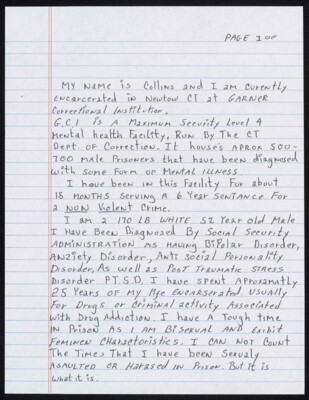 PAGE 1 OF
MY NAME is Collins and I am curently
encarcerated in Newtow CT at GARNER
Correctional Institution.
G.C.I is A Maximum Security Level 4
Mental health Facility, Run By The CT
Dept. of Correction. It house's Aprox 500-
700 male Prisoners that have been diagnosed
with some Form of Mental illness.
I have been in this Facility For about
18 months serving A 6 Year sentance For
a NON Violent Crime.
I am a 170 LB WHITE 52 Year old Male
I Have Been Diagnosed By Social Security
ADMINISTRATION AS HAVING BiPolar Disorder,
ANZiety Disorder, Anti Social Personality
Disorder, As well as Post Traumatic STRESS
Disorder P.T.S.D. I have spent Aproxamatly
25 Years of my life Encarserated usually
For Drugs or Criminal activity Associated
with Drug Addiction. I have a Tough time
IN Prison AS I AM BiSexual AND Exhibit
Feminen Charscteristics. I CAN NOT COUNT
The Times That I have been Sexualy
ASAULTED or HARASED in Prison. But it is
what it is.